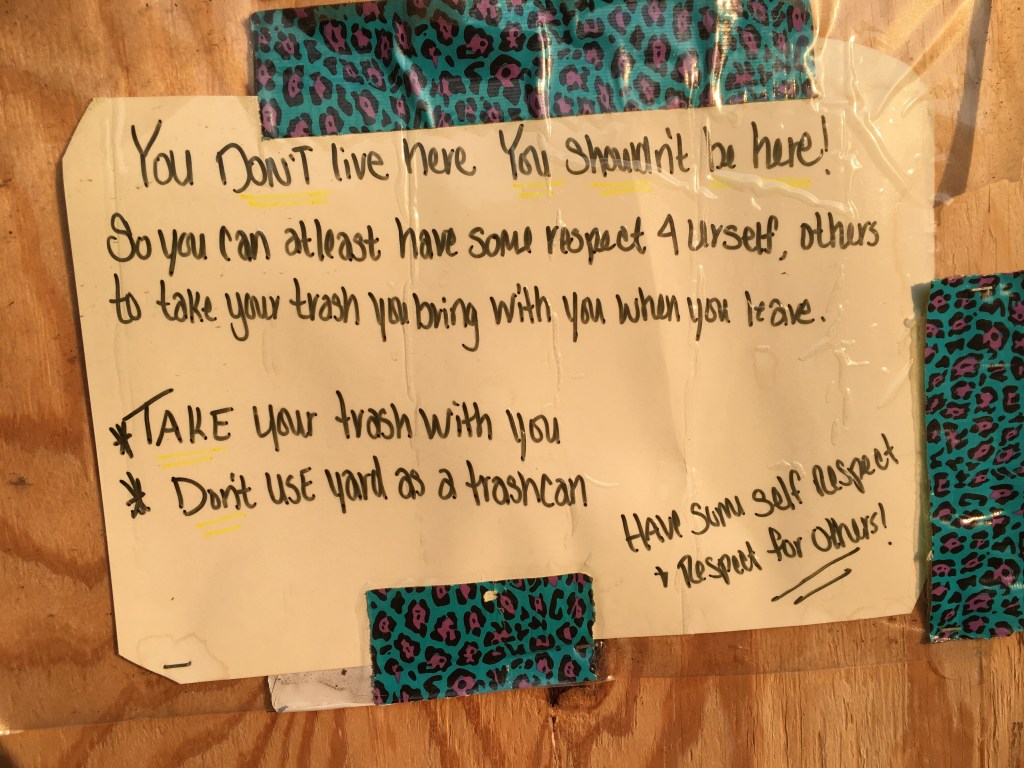 You DON'T live here You shouldn't be here!
So you can atleast have some respect 4 urself, others
to take your trash you bring with you when you leave.
* TAKE your trash with you
* Don't use yard as a trashcan
Have some self respect
+ Respect for others!